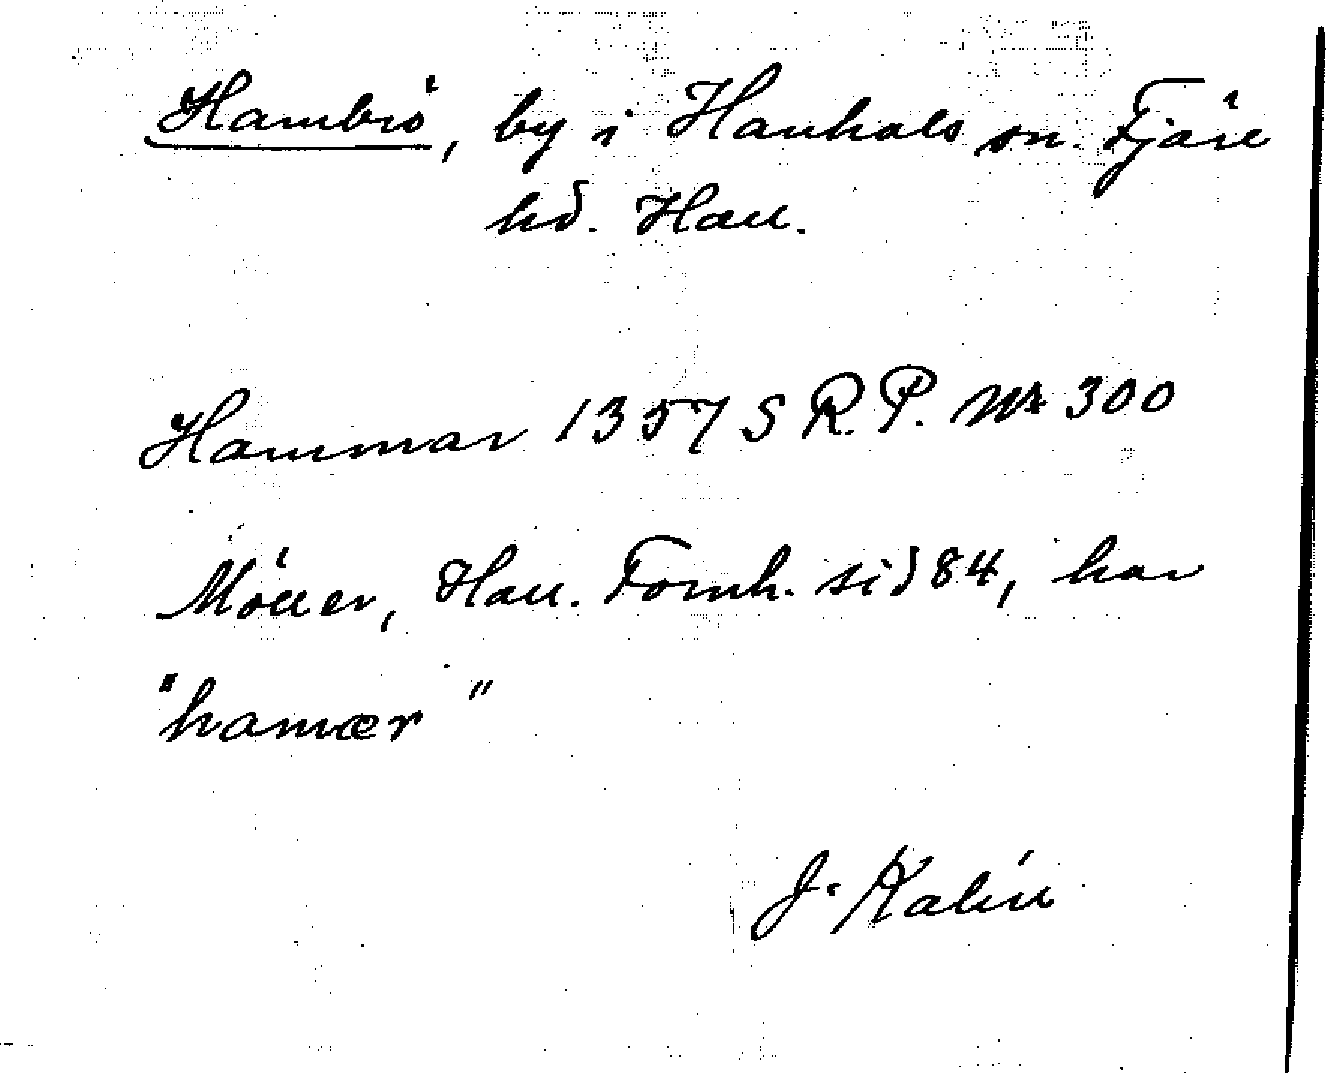 Hambrö, by i Hanhals sn. Fjäre
hd. Hall.
Hammar 1357 S R. P. Nr 300
Möller, Hall. Fornh. sid 84, har
"hamær"
J. Kalén